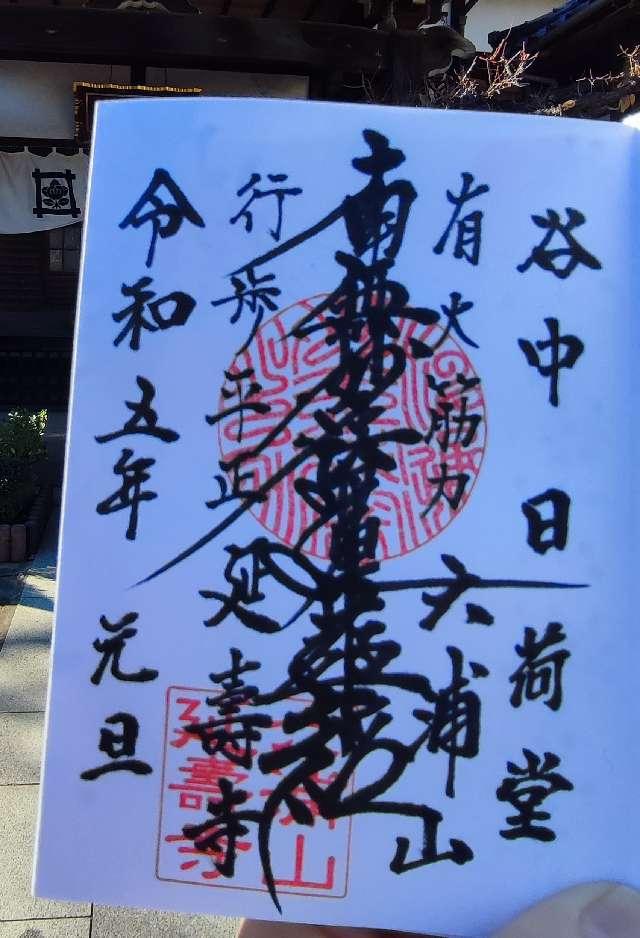 谷中日荷堂
有大筋力 六浦山
南無妙法蓮華経
行歩平正 延壽寺
令和五年 元旦
六浦山
延壽寺